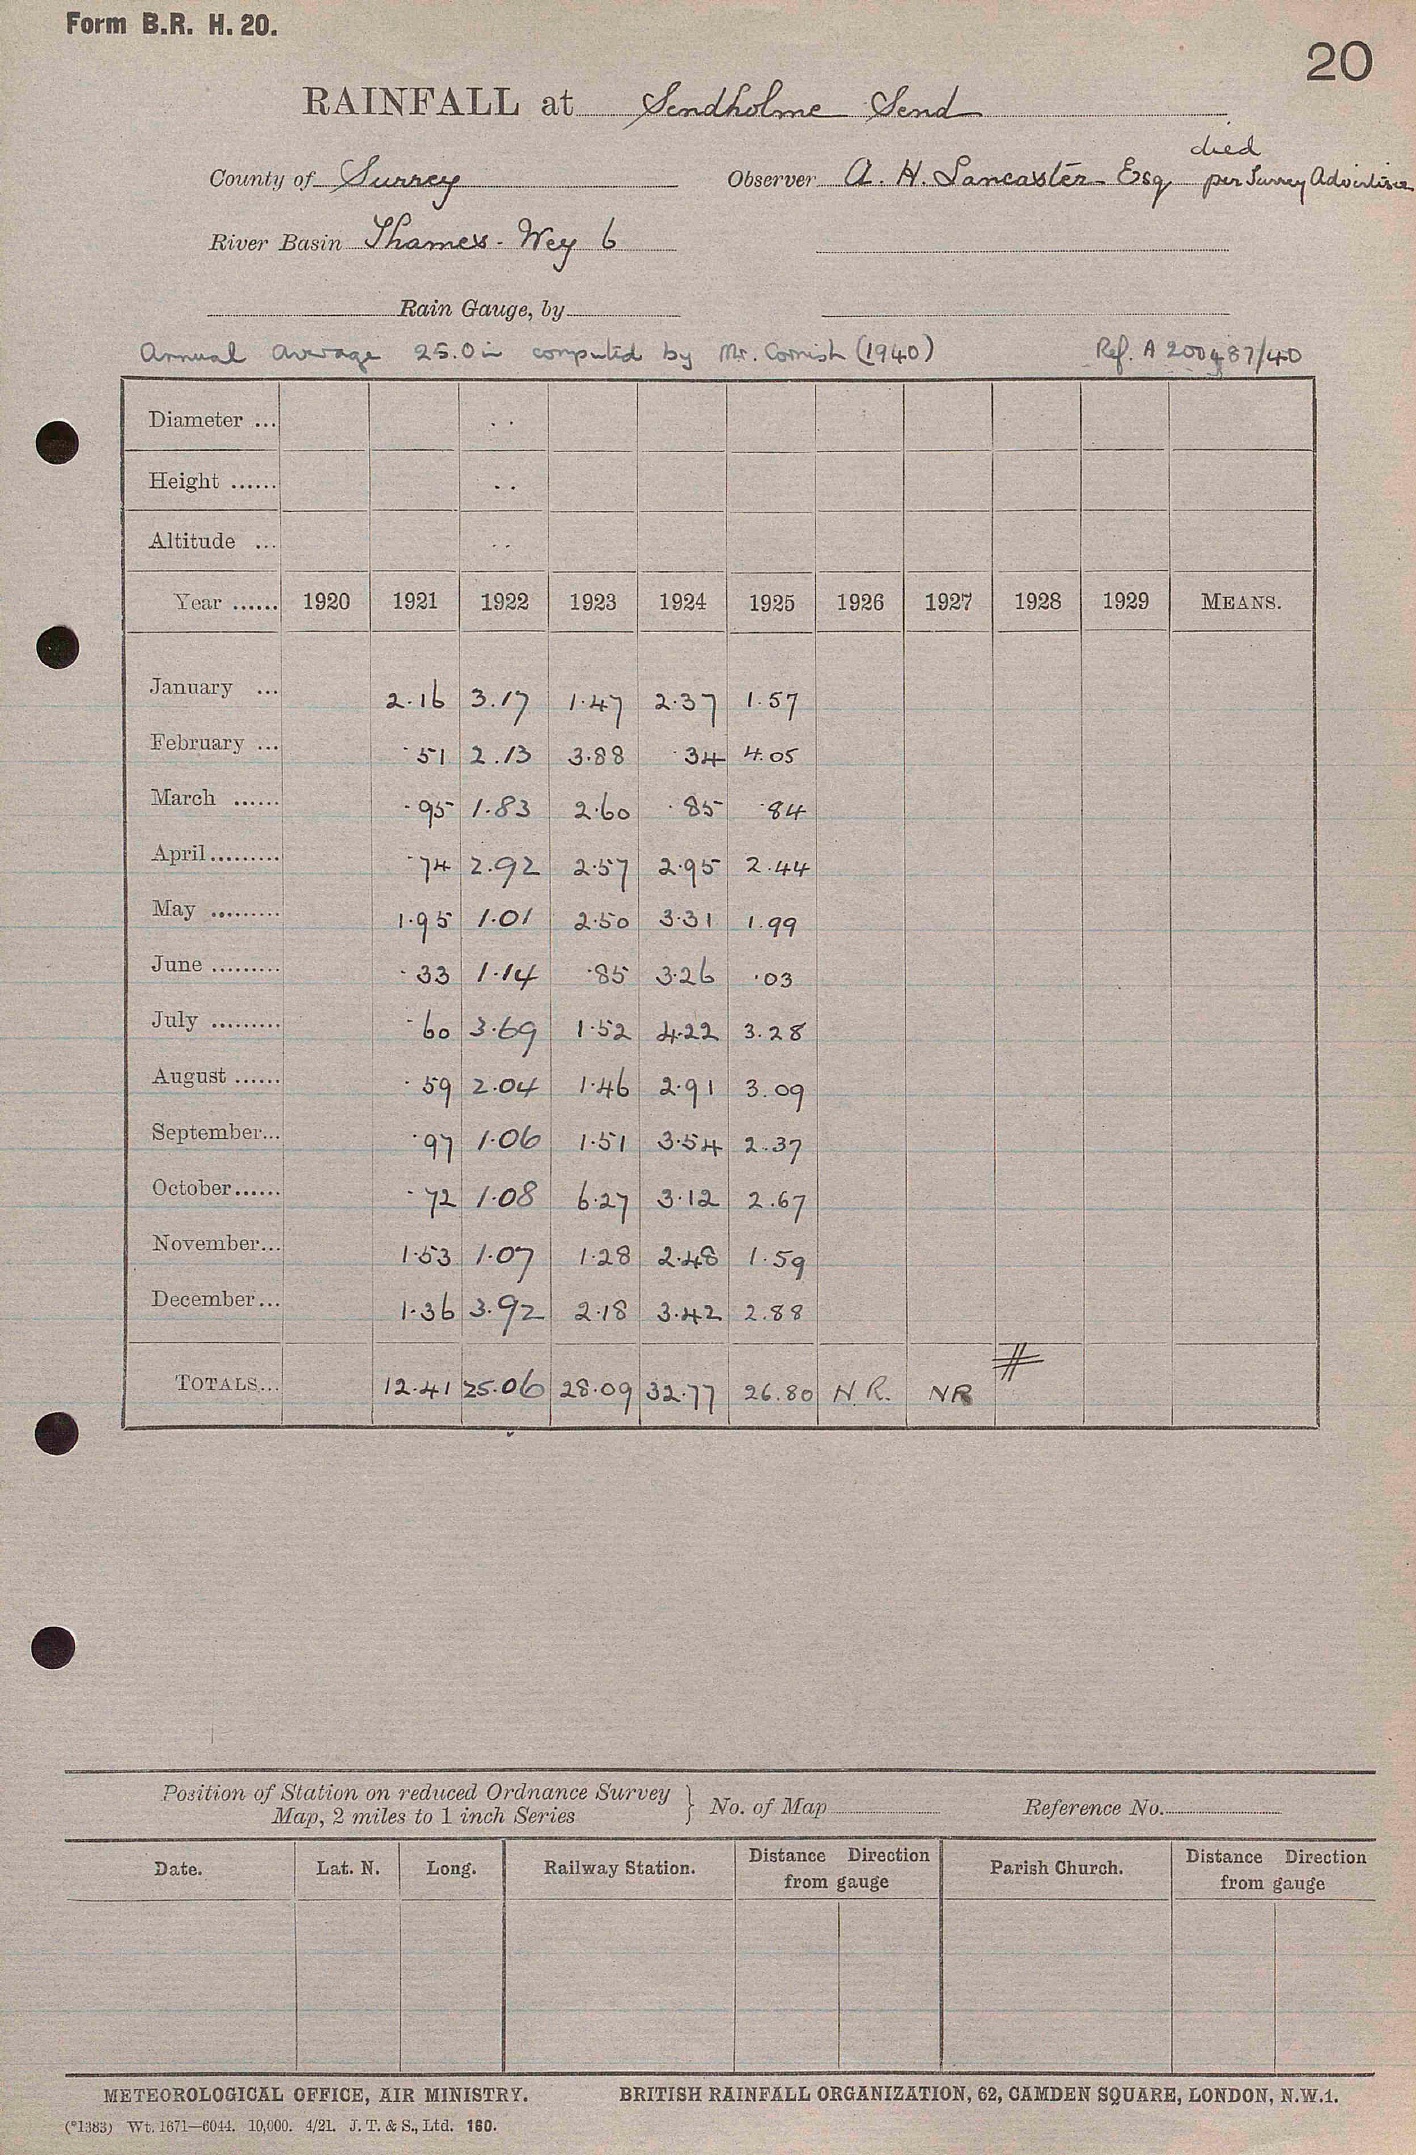 Form B.R. H. 20.
20
RAINFALL at Sendholme Send
died
County of Surrey Observer A. H. Lancaster Esq per Surrey Advertiser
River Basin Thames - Wey 6
Rain Gauge, by
Annual average 25.0 in computed by Mr. Cornish (1940) Ref. A 200487/40
Diameter ... . .
Height ...... . .
Altitude ... . .
Year ...... 1920 1921 1922 1923 1924 1925 1926 1927 1928 1929 MEANS.
January ... 2.16 3.17 1.47 2.37 1.57
February ... .51 2.13 3.88 .34 4.05
March ...... .95 1.83 2.60 .85 .84
April......... .74 2.92 2.57 2.95 2.44
May ......... 1.95 1.01 2.50 3.31 1.99
June ......... .33 1.14 .85 3.26 .03
July ......... .60 3.69 1.52 4.22 3.28
August ...... .59 2.04 1.46 2.91 3.09
September... .97 1.06 1.51 3.54 2.37
October...... .72 1.08 6.27 3.12 2.67
November... 1.53 1.07 1.28 2.48 1.59
December... 1.36 3.92 2.18 3.42 2.88
TOTALS... 12.41 25.06 28.09 32.77 26.80 N.R. NR #
Position of Station on reduced Ordnance Survey
Map, 2 miles to 1 inch Series } No. of Map Reference No.
Date. Lat. N. Long. Railway Station. Distance Direction from gauge Parish Church. Distance Direction from gauge
METEOROLOGICAL OFFICE, AIR MINISTRY. BRITISH RAINFALL ORGANIZATION, 62, CAMDEN SQUARE, LONDON, N.W.1.
(*1383) Wt. 1671—6044. 10,000. 4/21. J. T. & S., Ltd. 160.